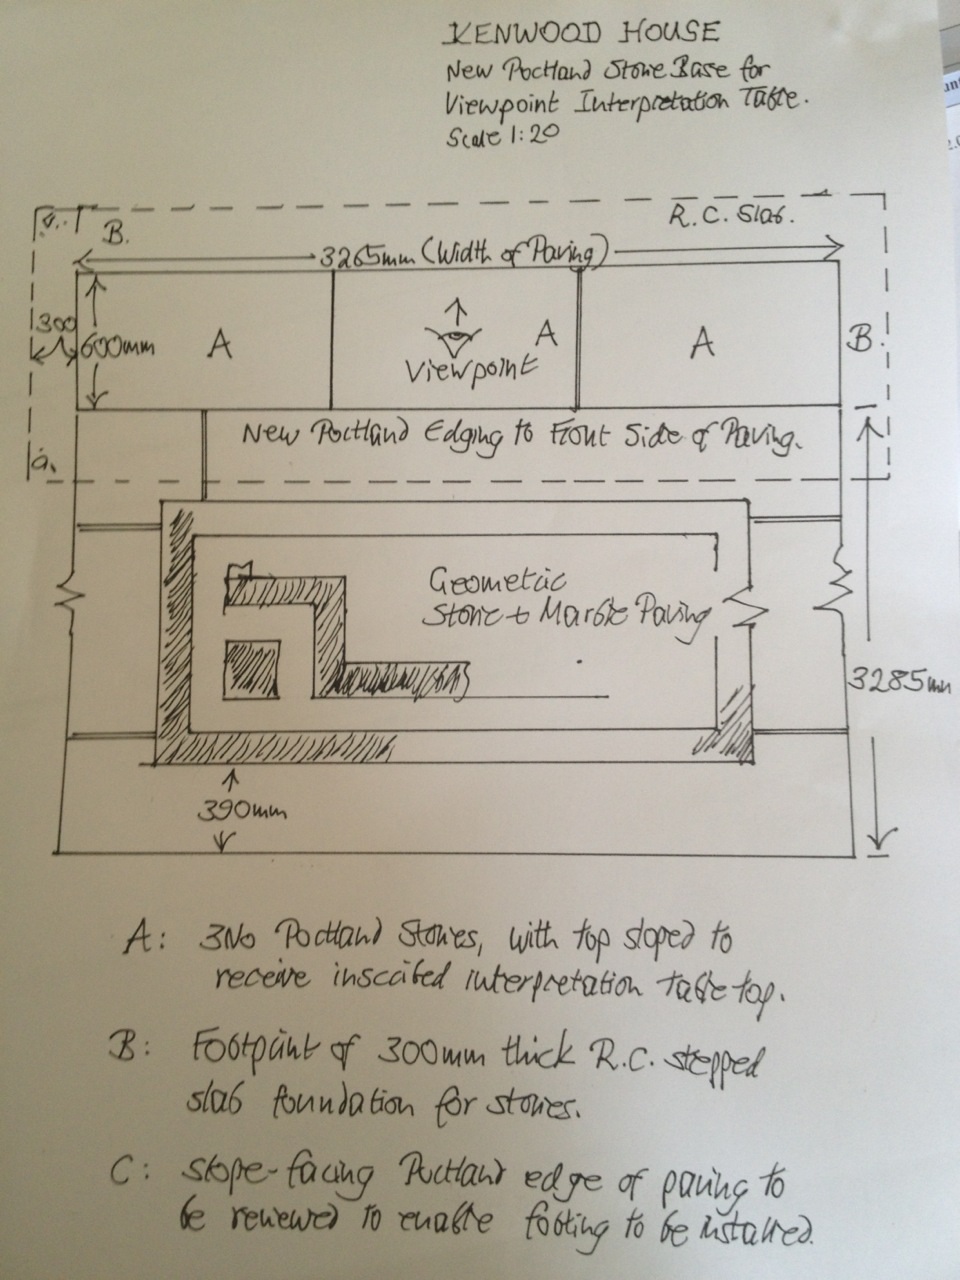 KENWOOD HOUSE
New Portland Stone Base for
Viewpoint Interpretation Table.
Scale 1:20
R.C. Slab.
B.
3265mm (Width of Paving)
300
600mm
A
A
A
B
Viewpoint
New Portland Edging to Front Side of Paving.
Geometric
Stone + Marble Paving
3285mm
390mm
A: 3No Portland Stones, with top sloped to
receive inscribed interpretation table top.
B: Footprint of 300mm thick R.C. stepped
slab foundation for stones.
C: Slope-facing Portland edge of paving to
be renewed to enable footing to be installed.